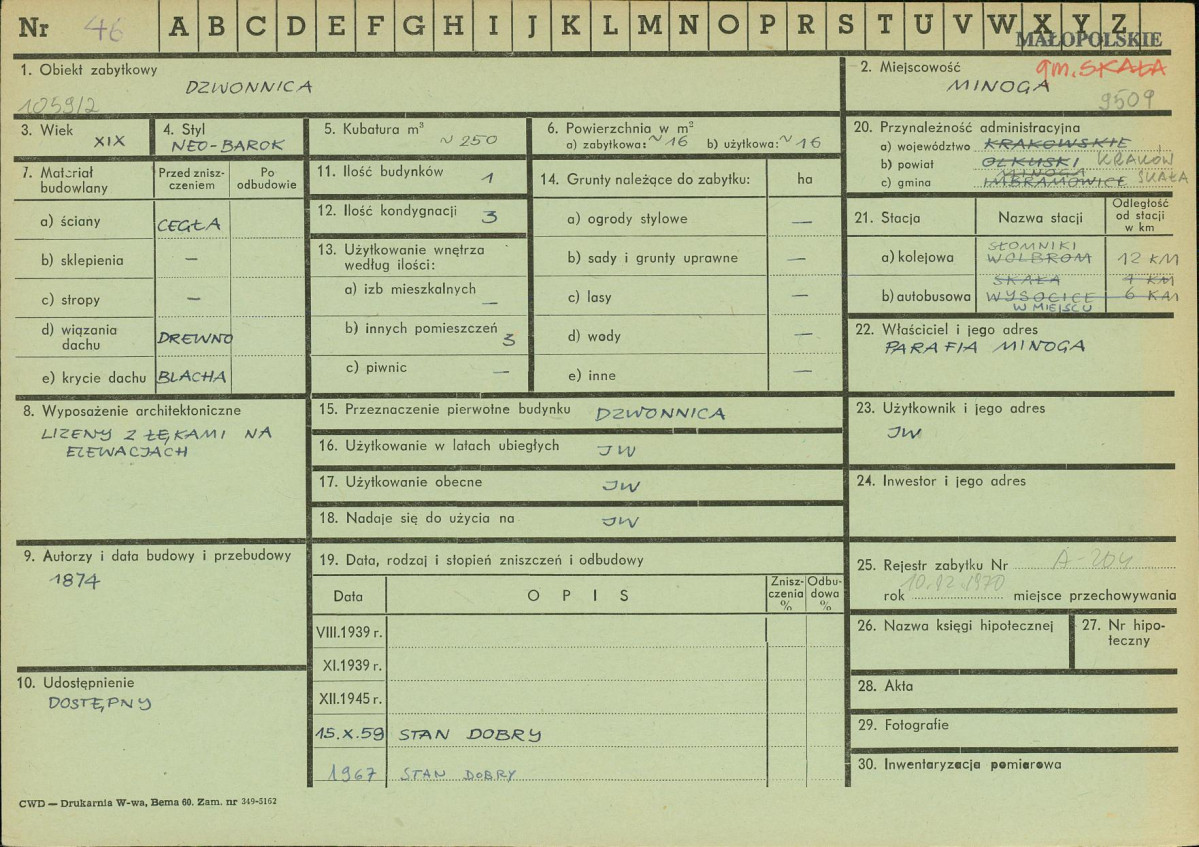 Nr 46 A B C D E F G H I J K L M N O P R S T U V W X Y Z
MAŁOPOLSKIE
1. Obiekt zabytkowy
DZWONNICA
1059/2
2. Miejscowość gm. SKAŁA
MINOGA
9509
3. Wiek
XIX
4. Styl
NEO-BAROK
5. Kubatura m³
~ 250
6. Powierzchnia w m²
a) zabytkowa: ~16 b) użytkowa: ~16
20. Przynależność administracyjna
a) województwo KRAKOWSKIE
b) powiat OLKUSKI KRAKÓW
MINOGA
c) gmina IMBRAMOWICE SKAŁA
7. Materiał budowlany
Przed zniszczeniem
Po odbudowie
a) ściany CEGŁA
b) sklepienia —
c) stropy —
d) wiązania dachu DREWNO
e) krycie dachu BLACHA
11. Ilość budynków 1
12. Ilość kondygnacji 3
13. Użytkowanie wnętrza
według ilości:
a) izb mieszkalnych —
b) innych pomieszczeń 3
c) piwnic —
14. Grunty należące do zabytku: ha
a) ogrody stylowe —
b) sady i grunty uprawne —
c) lasy —
d) wady —
e) inne —
21. Stacja Nazwa stacji Odległość od stacji w km
SŁOMNIKI
a) kolejowa WOLBROM 12 KM
SKAŁA 7 KM
b) autobusowa WYSOCICE 6 KM
W MIEJSCU
22. Właściciel i jego adres
PARAFIA MINOGA
8. Wyposażenie architektoniczne
LIZENY Z ŁĘKAMI NA
ELEWACJACH
15. Przeznaczenie pierwotne budynku DZWONNICA
16. Użytkowanie w latach ubiegłych JW
17. Użytkowanie obecne JW
18. Nadaje się do użycia na JW
23. Użytkownik i jego adres
JW
24. Inwestor i jego adres
9. Autorzy i data budowy i przebudowy
1874
10. Udostępnienie
DOSTĘPNY
19. Data, rodzaj i stopień zniszczeń i odbudowy
Data OPIS Zniszczenia % Odbudowa %
VIII.1939 r.
XI.1939 r.
XII.1945 r.
15.X.59 STAN DOBRY
1967 STAN DOBRY
25. Rejestr zabytku Nr A-204
rok 10.12.1970 miejsce przechowywania
26. Nazwa księgi hipotecznej
27. Nr hipoteczny
28. Akta
29. Fotografie
30. Inwentaryzacja pomiarowa
CWD — Drukarnia W-wa, Bema 60. Zam. nr 349-5162